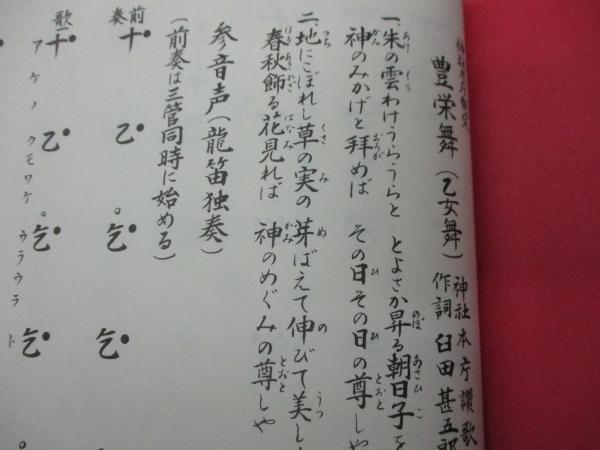 豊栄舞(乙女舞)
神社本庁讃歌
作詞 臼田甚五郎
一、朱の雲わけうらうらと とよさか昇る朝日子を
神のみかげと拝めば その日その日の尊しや
二、地にこぼれし草の実の 芽ばえて伸びて美し
春秋飾る花見れば 神のめぐみの尊しや
参音声(龍笛独奏)
(前奏は三管同時に始める)
前奏 十 乙 乞 乞
歌 十 乙 乞 乞
アケノクモワケウラウラト